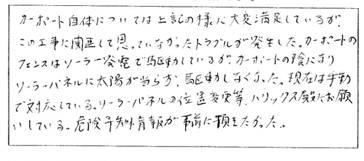 カーポート自体については上記の様に大変満足しているが、
この工事に関連して思っていなかったトラブルが発生した。カーポートの
フェンスはソーラー発電で駆動しているが、カーポートの陰になり
ソーラーパネルに太陽が当らず、駆動しなくなった。現在は手動
で対応している。ソーラーパネルの位置変更等、ハリックス殿にお願
いしている。危険予知情報が事前に頂きたかった。